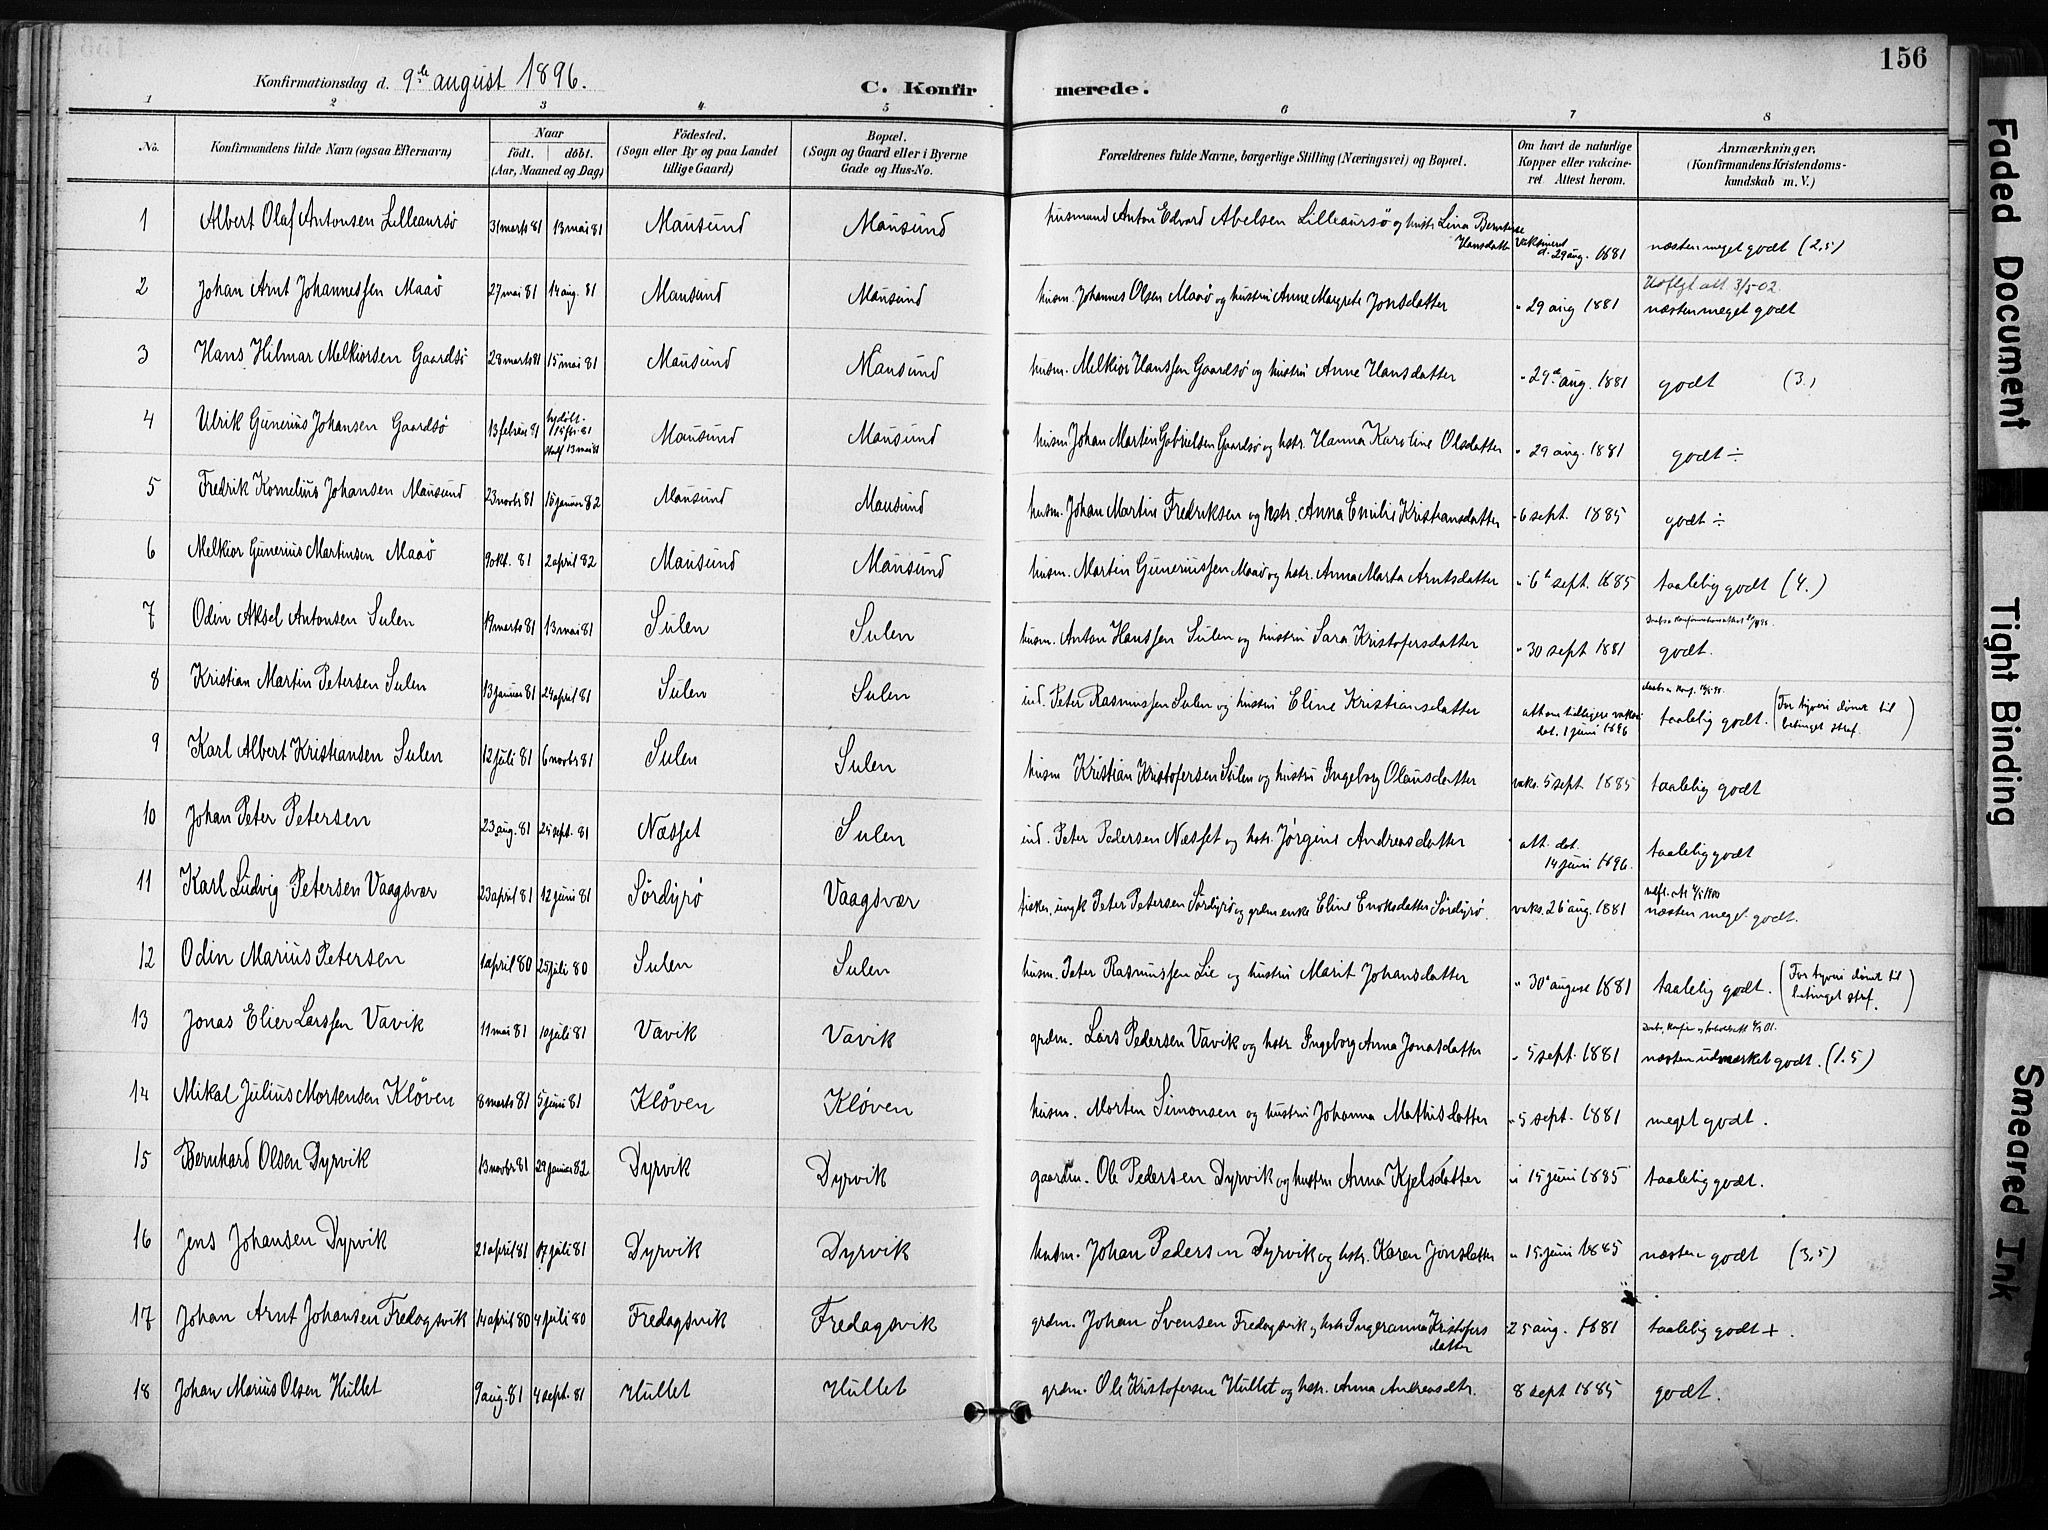 156
Konfirmationsdag d. 9de august 1896.
C. Konfirmerede.
1 2 3 4 5 6 7 8
No. | Konfirmandens fulde Navn (ogsaa Efternavn) | Naar født. | døbt. (Aar, Maaned og Dag) | Fødested. (Sogn eller By og paa Landet tillige Gaard) | Bopæl. (Sogn og Gaard eller i Byerne Gade og Hus-No. | Forældrenes fulde Navne, borgerlige Stilling (Næringsvei) og Bopæl. | Om havt de naturlige Kopper eller vakcineret Attest herom. | Anmærkninger, (Konfirmandens Kristendomskundskab m. V.)
1 Albert Olaf Antonsen Lilleaursø | 31 marts 81 | 13 mai 81 | Mausund | Mausund | husmand Anton Edvard Abelsen Lilleaursø og hustr. Lina Berntine Hansdatter | Vaksineret d. 29 aug. 1881 | næsten meget godt (2,5)
2 Johan Arnt Johannessen Maaø | 27 mai 81 | 14 aug. 81 | Mausund | Mausund | husm. Johannes Olsen Maaø og hustru Anne Margrete Jonsdatter | " 29 aug 1881 | Udflgt att 3/5-02. næsten meget godt
3 Hans Hilmar Melkiorsen Gaardsø | 28 marts 81 | 15 mai 81 | Mausund | Mausund | husm. Melkior Hanssen Gaardsø og hustru Anne Hansdatter | " 29de aug. 1881 | godt (3.)
4 Ulrik Gunerius Johansen Gaardsø | 13 febru 81 | hjdøbt 13 mai 81 | Mausund | Mausund | husm Johan Martin Gabrielsen Gaardsø og hstr. Hanna Karoline Olsdatter | " 29 aug. 1881 | godt ÷
5 Fredrik Kornelius Johansen Mausund | 23 novbr 81 | 15 januar 82 | Mausund | Mausund | husm. Johan Martin Fredriksen og hstr. Anna Emilie Kristiansdatter | " 6 sept. 1885 | godt ÷
6 Melkior Gunerius Martinsen Maaø | 9 okt. 81 | 2 april 82 | Mausund | Mausund | husm. Martin Guneriussen Maaø og hstr. Anna Marta Arntsdatter | " 6te sept. 1885 | taalelig godt (4.)
7 Odin Aksel Antonsen Sulen | 19 marts 81 | 13 mai 81 | Sulen | Sulen | husm. Anton Hanssen Sulen og hustru Sara Kristofersdatter | " 30 sept 1881 | godt.
8 Kristian Martin Petersen Sulen | 13 januar 81 | 24 april 81 | Sulen | Sulen | ind. Peter Rasmussen Sulen og hustru Eline Kristiansdatter | att om tidligere vaksi. dat. 1 juni 1896 | taalelig godt. (For tyveri dømt til betinget straf.)
9 Karl Albert Kristiansen Sulen | 12 juli 81 | 6 novbr 81 | Sulen | Sulen | husm Kristian Kristofersen Sulen og hustru Ingeborg Olausdatter | vaks. 5 sept 1885 | taalelig godt
10 Johan Peter Petersen | 23 aug. 81 | 25 sept. 81 | Næsset | Sulen | ind. Peter Pedersen Næsset og hstr. Jørgine Andreasdatter | att. dat. 14 juni 1896. | taalelig godt
11 Karl Ludvig Petersen Vaagsvær | 23 april 81 | 12 juni 81 | Sørdyrø | Vaagsvær | fisker, ungk Peter Petersen Sørdyrø og grdm enke Eline Enoksdatter Sørdyrø. | vaks. 26 aug. 1881 | næsten meget godt.
12 Odin Marius Petersen | 1 april 80 | 25 juli 80 | Sulen | Sulen | husm. Peter Rasmussen Lie og hustru Marit Johansdatter | " 30te august 1881 | taalelig godt. (For tyveri dømt til betinget straf.)
13 Jonas Elier Larssen Vavik | 11 mai 81 | 10 juli 81 | Vavik | Vavik | grdm. Lars Pedersen Vavik og hstr. Ingeborg Anna Jonasdatter | " 5 sept. 1881 | næsten udmærket godt. (1.5)
14 Mikal Julius Mortensen Kløven | 8 marts 81 | 5 juni 81 | Kløven | Kløven | husm. Morten Simonsen og hustru Johanna Mathisdatter | " 5 sept. 1881 | meget godt.
15 Bernhard Olsen Dyrvik | 13 novbr 81 | 29 januar 82 | Dyrvik | Dyrvik | gaardm. Ole Pedersen Dyrvik og hustru Anna Kjelsdatter | " 15 juni 1885 | taalelig godt.
16 Jens Johansen Dyrvik | 21 april 81 | 17 juli 81 | Dyrvik | Dyrvik | husm. Johan Pedersen Dyrvik og hstr. Karen Jonsdatter | " 15 juni 1885 | næsten godt (3,5)
17 Johan Arnt Johansen Fredagsvik | 14 april 80 | 4 juli 80 | Fredagsvik | Fredagsvik | grdm. Johan Svensen Fredagsvik og hstr. Ingeranna Kristofersdatter | 25 aug. 1881 | taalelig godt +.
18 Johan Marius Olsen Hullet | 9 aug. 81 | 4 sept. 81 | Hullet | Hullet | grdm. Ole Kristofersen Hullet og hstr. Anna Andreasdtr. | 8 sept 1885 | godt.
Faded Document
Tight Binding
Smeared Ink